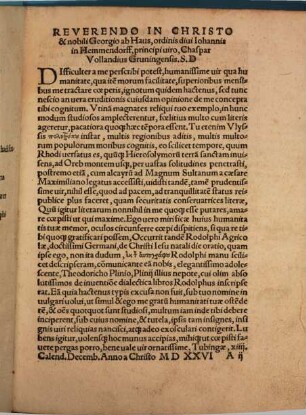 REVERENDO IN CHRISTO
& nobili Georgio ab Haus, ordinis diui Iohannis
in Hemmendorff, principi uiro, Chaspar
Vollandius Gruningensis. S. D
Difficulter a me perscribi potest, humanissime uir qua hu
manitate, qua itē morum facilitate, superioribus mensi
bus me tractare cœperis, ignotum quidem hactenus, sed tunc
nescio an uera eruditionis cuiusdam opinione de me concepta
tibi cognitum. Vtinā magnates reliqui tuo exemplo, in hunc
modum studiosos amplecterentur, felicius multo cum literis
ageretur, pacatiora quoqȝ hæc tēpora essent. Tu etenim Vlys
sis instar, multis regionibus aditis, multis multo
rum populorum moribus cognitis, eo scilicet tempore, quum
Rhodi uersatus es, quod uel Hierosolymorū terrā sanctam in
uisens, ad Oreb montem usqȝ, per uastas solitudines penetrasti,
postremo etiā, cum alcayrū ad Magnum Sultanum a cæsare
Maximiliano legatus accessisti, uidisti tandē, tamē prudentis
sime uir, nihil esse, quod æque, ad tranquillitatē status rei
publice plus faceret, quam securitatis conseruatrices literæ,
Quū igitur literatum nonnihil in me quoqȝ esse putares, amar
ore cœpisti ut qui maxime. Ego uero mirificæ huius humanita
tis tuæ memor, oculos circunferre cœpi dispitiens, si qua re ti
bi quoqȝ gratificari possem, Occurrit tandē Rodolphi Agrico
læ, doctissimi Germani, de Christi Iesu natali die oratio, quam
ipse ego, non ita dudum, Rodolphi manu sci
licet descriptam, cōmunicante eā nobis, elegantissimo adoles
cente, Theodoricho Plinio, Plinij illius nepote, cui olim abso
lutissimos de inuentiōe dialectica libros Rodolphus inscripse
rat. Eā quia hactenus typis excusa non fuit, sub tuo nomine in
uulgari uolui, ut simul & ego me gratū humanitati tuæ ostēde
rē, & oēs quotquot sunt studiosi, multum iam inde tibi debere
inciperent, sub cuius nomine, & tutela, ipsis tam insignes, ins
ignis uiri reliquias nancisci, atqȝ adeo ex osculari contigerit. Lu
bens igitur, uolensqȝ hoc munus accipias, mihiqȝ ut cœpisti fa
uere pergas porro, bene uale uir ornatissime, Tubingæ xiiij.
Calend. Decemb. Anno a Christo M D XXVI
A ij